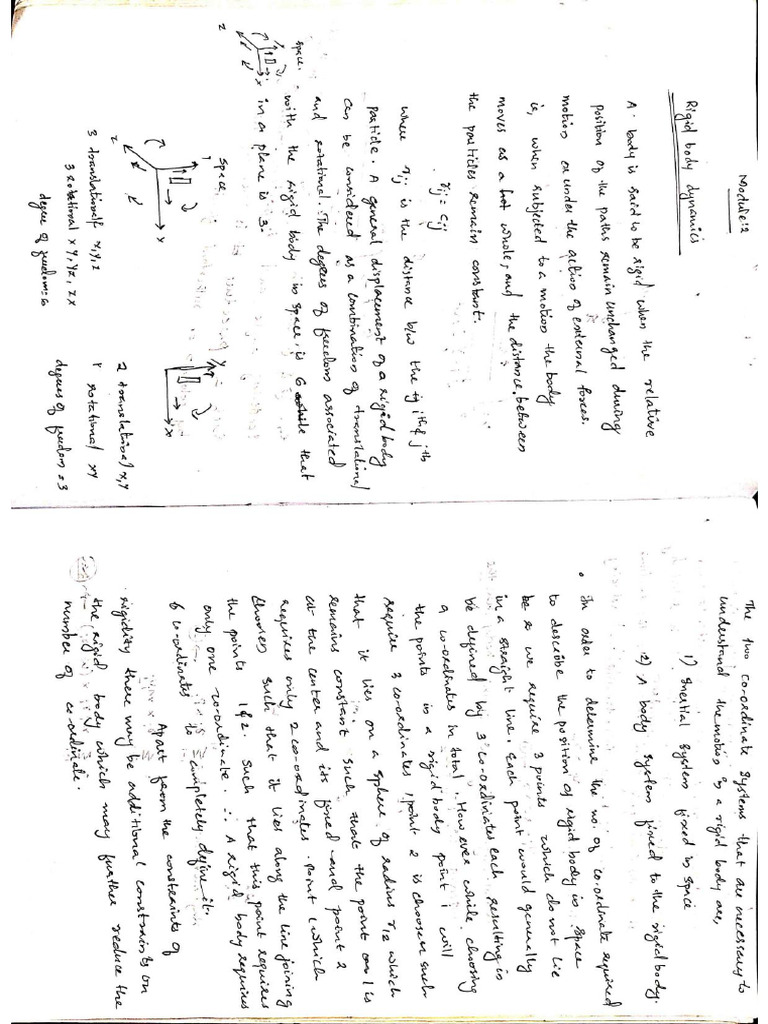 Module:2
Rigid body dynamics
A body is said to be rigid when the relative
position of the paths remain unchanged during
motion or under the action of external forces.
is, when subjected to a motion the body
moves as a whole, and the distance between
the particles remain constant.
rij = cij
where rij is the distance b/w the ith & jth
particle. A general displacement of a rigid body
can be considered as a combination of translational
and rotational. The degrees of freedom associated
with the rigid body in space is 6 while that
in a plane is 3.
space.
z
x
space
y
x
z
3 translational x, y, z
3 rotational xy, yz, zx
degree of freedom: 6
x
2 translational x, y
1 rotational xy
degrees of freedom = 3
The two co-ordinate systems that are necessary to
understand the motion of a rigid body are,
1) Inertial system fixed in space
2) A body system fixed to the rigid body.
• In order to determine the no. of co-ordinate required
to describe the position of rigid body in space
we require 3 points which do not lie
in a straight line. Each point would generally
be defined by 3 co-ordinates each resulting in
9 co-ordinates in total. However while choosing
the points in a rigid body point 1 will
require 3 co-ordinates, point 2 is choosen such
that it lies on a sphere of radius r12 which
remains constant such that the point 1 is
at the center and its fixed and point 2
requires only 2 co-ordinates. point which
choosen such that it lies along the line joining
the points 1 & 2. Such that this point requires
only one co-ordinate. ∴ A rigid body requires
6 co-ordinates to completely define it.
Apart from the constraints of
rigidity there may be additional constraints on
the rigid body which may further reduce the
number of co-ordinate.